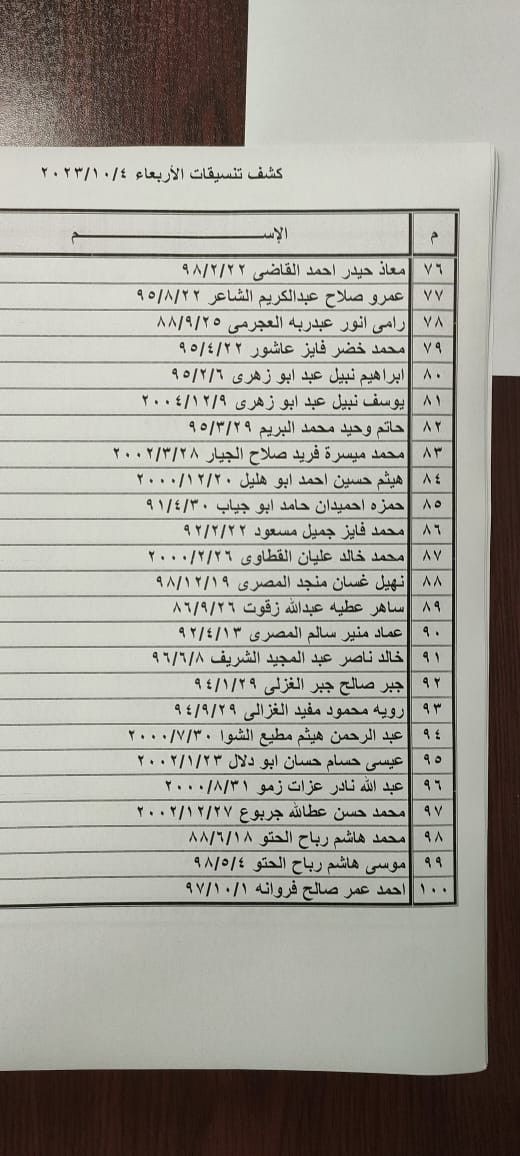 كشف تنسيقات الأربعاء ٢٠٢٣/١٠/٤
م الإســـــــــــم
٧٦ معاذ حيدر احمد القاضى ٩٨/٢/٢٢
٧٧ عمرو صلاح عبدالكريم الشاعر ٩٥/٨/٢٢
٧٨ رامى انور عبدربه العجرمى ٨٨/٩/٢٥
٧٩ محمد خضر فايز عاشور ٩٥/٤/٢٢
٨٠ ابراهيم نبيل عبد ابو زهرى ٩٥/٢/٦
٨١ يوسف نبيل عبد ابو زهرى ٢٠٠٤/١٢/٩
٨٢ حاتم وحيد محمد البريم ٩٥/٣/٢٩
٨٣ محمد ميسرة فريد صلاح الجيار ٢٠٠٢/٣/٢٨
٨٤ هيثم حسين احمد ابو هليل ٢٠٠٠/١٢/٢٠
٨٥ حمزه احميدان حامد ابو جياب ٩١/٤/٣٠
٨٦ محمد فايز جميل مسعود ٩٢/٢/٢٢
٨٧ محمد خالد عليان القطاوى ٢٠٠٠/٢/٢٦
٨٨ نهيل غسان منجد المصرى ٩٨/١٢/١٩
٨٩ ساهر عطيه عبدالله زقوت ٨٦/٩/٢٦
٩٠ عماد منير سالم المصرى ٩٢/٤/١٣
٩١ خالد ناصر عبد المجيد الشريف ٩٦/٦/٨
٩٢ جبر صالح جبر الغزلى ٩٤/١/٢٩
٩٣ رويه محمود مفيد الغزالى ٩٤/٩/٢٩
٩٤ عبد الرحمن هيثم مطيع الشوا ٢٠٠٠/٧/٣٠
٩٥ عيسى حسام حسان ابو دلال ٢٠٠٢/١/٢٣
٩٦ عبد الله نادر عزات زمو ٢٠٠٠/٨/٣١
٩٧ محمد حسن عطالله جربوع ٢٠٠٢/١٢/٢٧
٩٨ محمد هاشم رباح الحتو ٨٨/٦/١٨
٩٩ موسى هاشم رباح الحتو ٩٨/٥/٤
١٠٠ احمد عمر صالح فروانه ٩٧/١٠/١